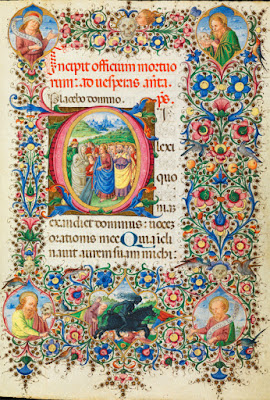 Incipit officium mortuo
rum: ad vesperas anta.
Placebo domino. ps.
Dilexi
quo
niam
exaudiet dominus: vocez
orationis mee. Quia icli
navit aurem suam michi: